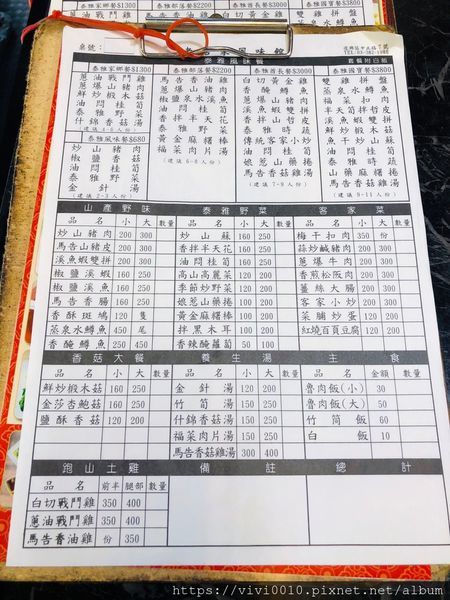 泰雅家鄉$1300
泰雅部落餐$2200
泰雅酋長餐$3000
泰雅國寶餐$3800
桌號:
風味館
泰雅風味餐
套餐附白飯
泰雅家鄉餐$1300
蔥油戰鬥雞
蔥爆山豬肉
鮮炒椴木菇
油悶桂筍
泰雅野菜
什錦香菇湯
(建議4-6人份)
泰雅風味餐$680
炒山豬肉
椒鹽香菇
油悶桂筍
泰雅野菜
金針湯
(建議2-3人份)
泰雅部落餐$2200
馬告香油雞
蔥爆山豬肉
椒鹽泉水溪魚
油悶桂筍
香拌半天花
泰雅野菜
黃金麻糬棒
福菜肉片湯
(建議6-8人份)
泰雅酋長餐$3000
白切黃金雞
香醃鱒魚
蔥爆山豬肉
溪魚蝦雙拼
香拌山哲皮
泰雅時蔬
傳統客家小炒
油悶桂筍
娘惹山藥捲
馬告香菇雞湯
(建議7-9人份)
泰雅國寶餐$3800
雙雞拼盤
蒸泉水鱒魚
福菜扣肉
溪魚蝦雙拼
半天筍拌哲皮
鮮炒椴木菇
魚干炒山蘇
油悶桂筍
泰雅時蔬
山藥捲拼盤
馬告香菇雞湯
(建議9-11人份)
山產野味
泰雅野菜
客家菜
品名 小 大 數量 品名 小 大 數量 品名 小 大 數量
炒山豬肉 200 300 炒山蘇 160 250 梅干扣肉 350 份
馬告山豬皮 200 300 香拌半天花 160 250 蒜炒鹹豬肉 200 300
溪魚蝦雙拼 200 300 油悶桂筍 160 250 蔥爆牛肉 200 300
椒鹽溪蝦 160 250 高山高麗菜 120 200 香煎松阪肉 200 300
椒鹽溪魚 160 250 季節炒野菜 120 200 薑絲大腸 200 300
馬告香腸 160 250 娘惹山藥捲 100 200 客家小炒 200 300
香酥斑鳩 120 隻 黃金麻糬棒 100 200 菜脯炒蛋 120 200
蒸泉水鱒魚 450 尾 拌黑木耳 100 200 紅燒百頁豆腐 120 200
香醃鱒魚 250 450 香辣醃蘿蔔 50 100
香菇大餐
養生湯
主食
品名 小 大 數量 品名 小 大 數量 品名 金額 數量
鮮炒椴木菇 160 250 金針湯 120 200 魯肉飯(小) 30
金莎杏鮑菇 160 250 竹筍湯 150 250 魯肉飯(大) 50
鹽酥香菇 120 200 什錦香菇湯 150 250 竹筒飯 60
福菜肉片湯 150 250 白飯 10
馬告香菇雞湯 300 400
跑山土雞
備註
總計
品名 前半 腿部 數量
白切戰鬥雞 350 400
蔥油戰鬥雞 350 400
馬告香油雞 份 350
https://vivi0010.pixnet.net/album